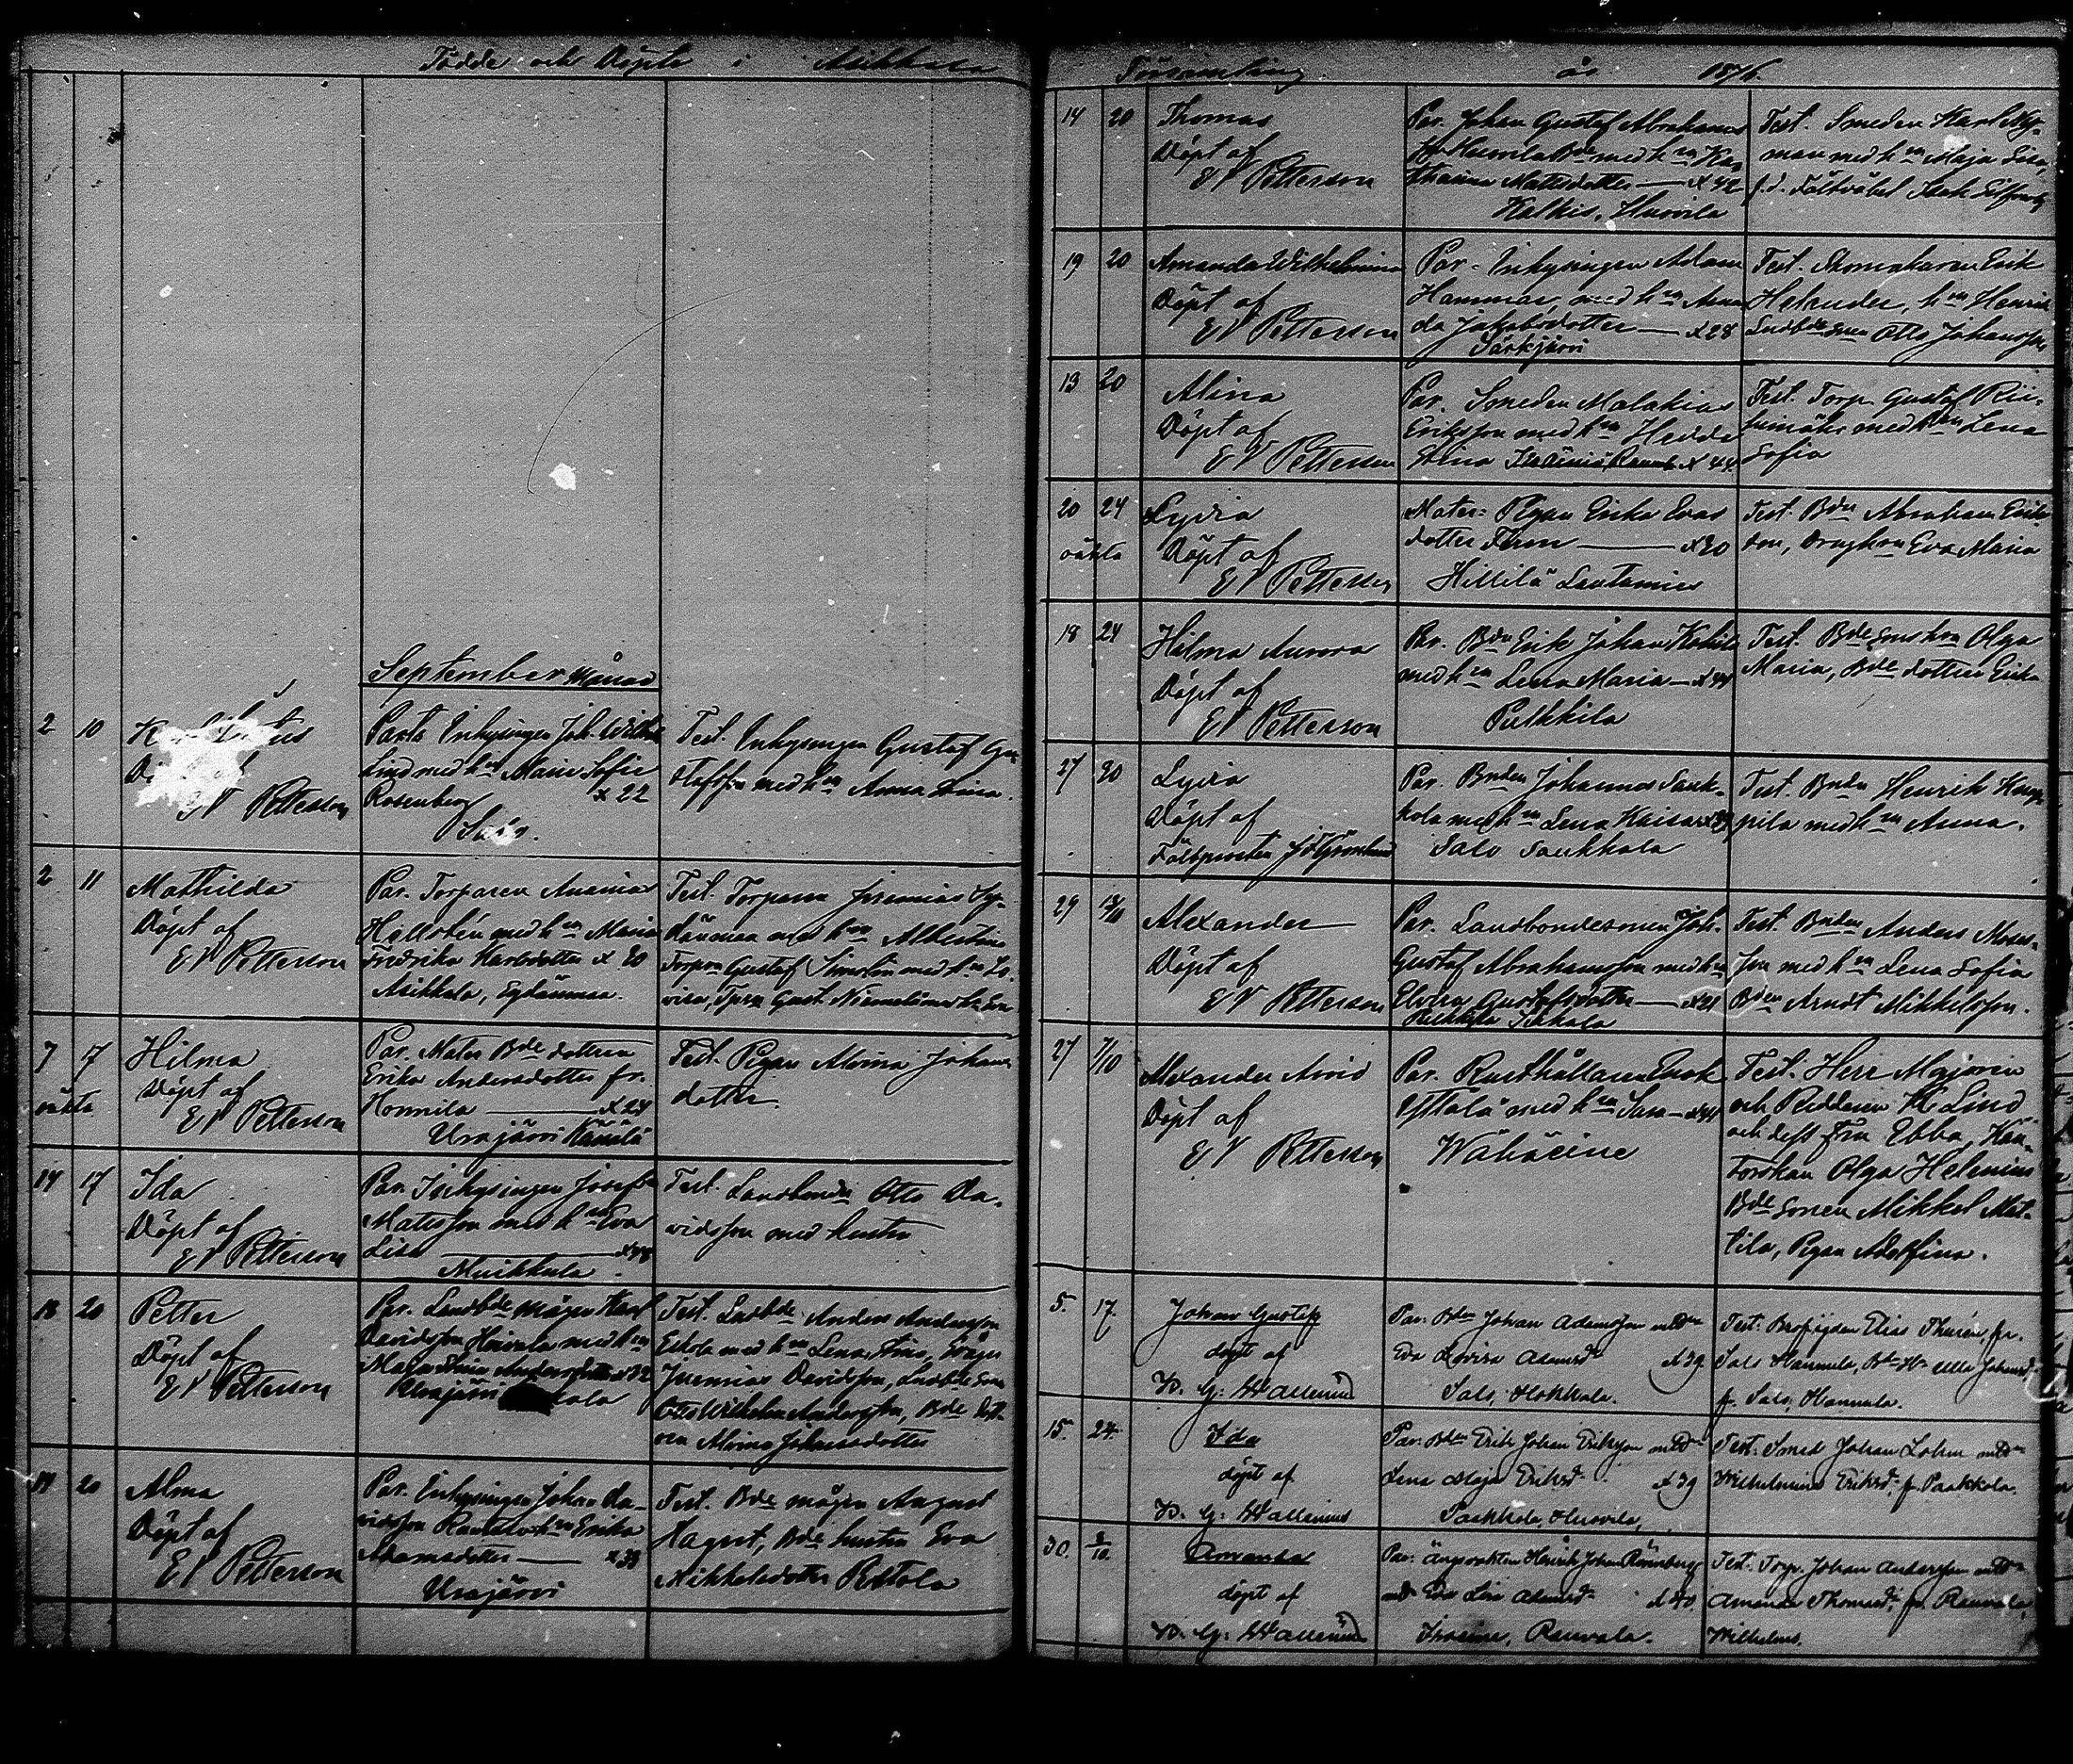 Födde och Döpte i Asikkala
September månad
2 10
E V Petterson
Parts Inhysingen Joh. Wilh.
Lind med hn Maria Sofia
Rosenberg x 22
Test. Inhysingen Gustaf Gu-
stafsson med hn Anna Stina.
2 11 Mathilda
Döpt af
E V Petterson
Par. Torparen Ananias
Hallstén med hn Maria
Fredrika Karlsdotter x 20
Asikkala, Sydänmaa.
Test. Torparen Jeremias Sy-
dänmaa med hn Albertina
Torpn Gustaf Simolin med hn Lo-
visa, Tprn Gust. Niemelä med hn Eva
7 17 Hilma
oäkta
Döpt af
E V Petterson
Par. Mater Bde dottren
Erika Andersdotter fr.
Honnila x 24
Urajärvi Känilä
Test. Pigan Alvina Johans-
dotter.
14 17 Ida
Döpt af
E V Petterson
Par. Inhysingen Josef
Matsson med hn Eva
Lisa x 48
Muikkula.
Test. Landbonde Otto Da-
vidsson med hustru
18 20 Petter
Döpt af
E V Petterson
Par. Landbde mågen Karl
Davidsson Hoivala med hn
Maja Stina Andersdotter x 32
Urajärvi
Test. Landbde Anders Andersson
Eskola med hn Lena Stina,
Jeremias Davidsson, Landbde son
Otto Wilhelm Andersson, Bde dott-
ren Alvina Johansdotter
19 20 Alma
Döpt af
E V Petterson
Par. Inhysingen Johan Da-
vidsson Rantala hn Erika
Adamsdotter x 33
Urajärvi
Test. Bde mågen August
Hagert, Bde hustru Eva
Mikkelsdotter Pettola
Församling år 1876
14 20 Thomas
Döpt af
E V Petterson
Par. Johan Gustaf Abrahams
son Huovila Bde med hn Ka-
tharina Matsdotter x 42
Kalkis, Huovila
Test. Smeden Karl Ny-
man med hn Maja Lisa,
f.d. Fältväbel Isak
19 20 Amanda Wilhelmina
Döpt af
E V Petterson
Par. Inhysingen Adam
Hammar, med hn Aman
da Jakobsdotter x 28
Särkjärvi
Test. Stomakaren Erik
Helander, hn Henrik
Landbde son Otto Johansson
13 20 Alina
Döpt af
E V Petterson
Par. Smeden Malakias
Eriksson med hn Hedda
Stina x 44
Test. Torp. Gustaf Rii-
himäki med hn Lena
Sofia
20 24 Lydia
oäkta
Döpt af
E V Petterson
Mater: Pigan Erika Evas
dotter Term x 20
Hillilä Lautamies
Test. Bdn Abraham Eriks-
son, Drngkon Eva Maria
18 24 Hilma Aurora
Döpt af
E V Petterson
Par. Bdn Erik Johan
med hn Lena Maria x 44
Pulkkila
Test. Bde sons hn Olga
Maria, Bde dottren Erika
27 30 Lydia
Döpt af
Fältprosten J F Grönlund
Par. Bnden Johannes Sauk-
kola med hn Lena Kaisa
Salo Saukkola
Test. Bnden Henrik Kaup-
pila med hn Anna.
29 Alexander
Döpt af
E V Petterson
Par. Landbondesonen Joh.
Gustaf Abrahamsson med hn
Elvira Gustafsdotter x 21
Test. Bnden Anders Moses-
son med hn Lena Sofia
Bden Arndt Mikkelsson.
27 7/10 Alexander Arvid
Döpt af
E V Petterson
Par. Rusthållaren Enok
Yttalä med hn Sara x 41
Wähäeine
Test. Herr Majoren
och Riddaren K. Lind
och dess Fru Ebba, Kan-
torskan Olga Helenius
Bde sonen Mikkel Mat-
tila, Pigan Adolfina.
5. 17. Johan Gustaf
döpt af
K. G. Wallenius
Par. Bdn Johan Adamsson
Eva Lovisa Adamsdr x 39
Salo, Hokkala.
Test. Elias Thurén, fr.
Salo Hannula, Ulla Johansdr
fr. Salo, Hannula.
15. 24. Ida
döpt af
K. G. Wallenius
Par. Bdn Erik Johan Eriksson
Lena Maja Eriksdr x 39
Paakkola, Huovila,
Test. Smed Johan Lohm
Wilhelmina Eriksdr fr. Paakkola.
30. 8/10. Amanda
döpt af
K. G. Wallenius
Par. Henrik Johan Rönnberg
Eva Lisa Adamsdr x 40
Rauvala.
Test. Torp. Johan Andersson
Amanda Thomasdr fr. Rauvala,
Wilhelms.